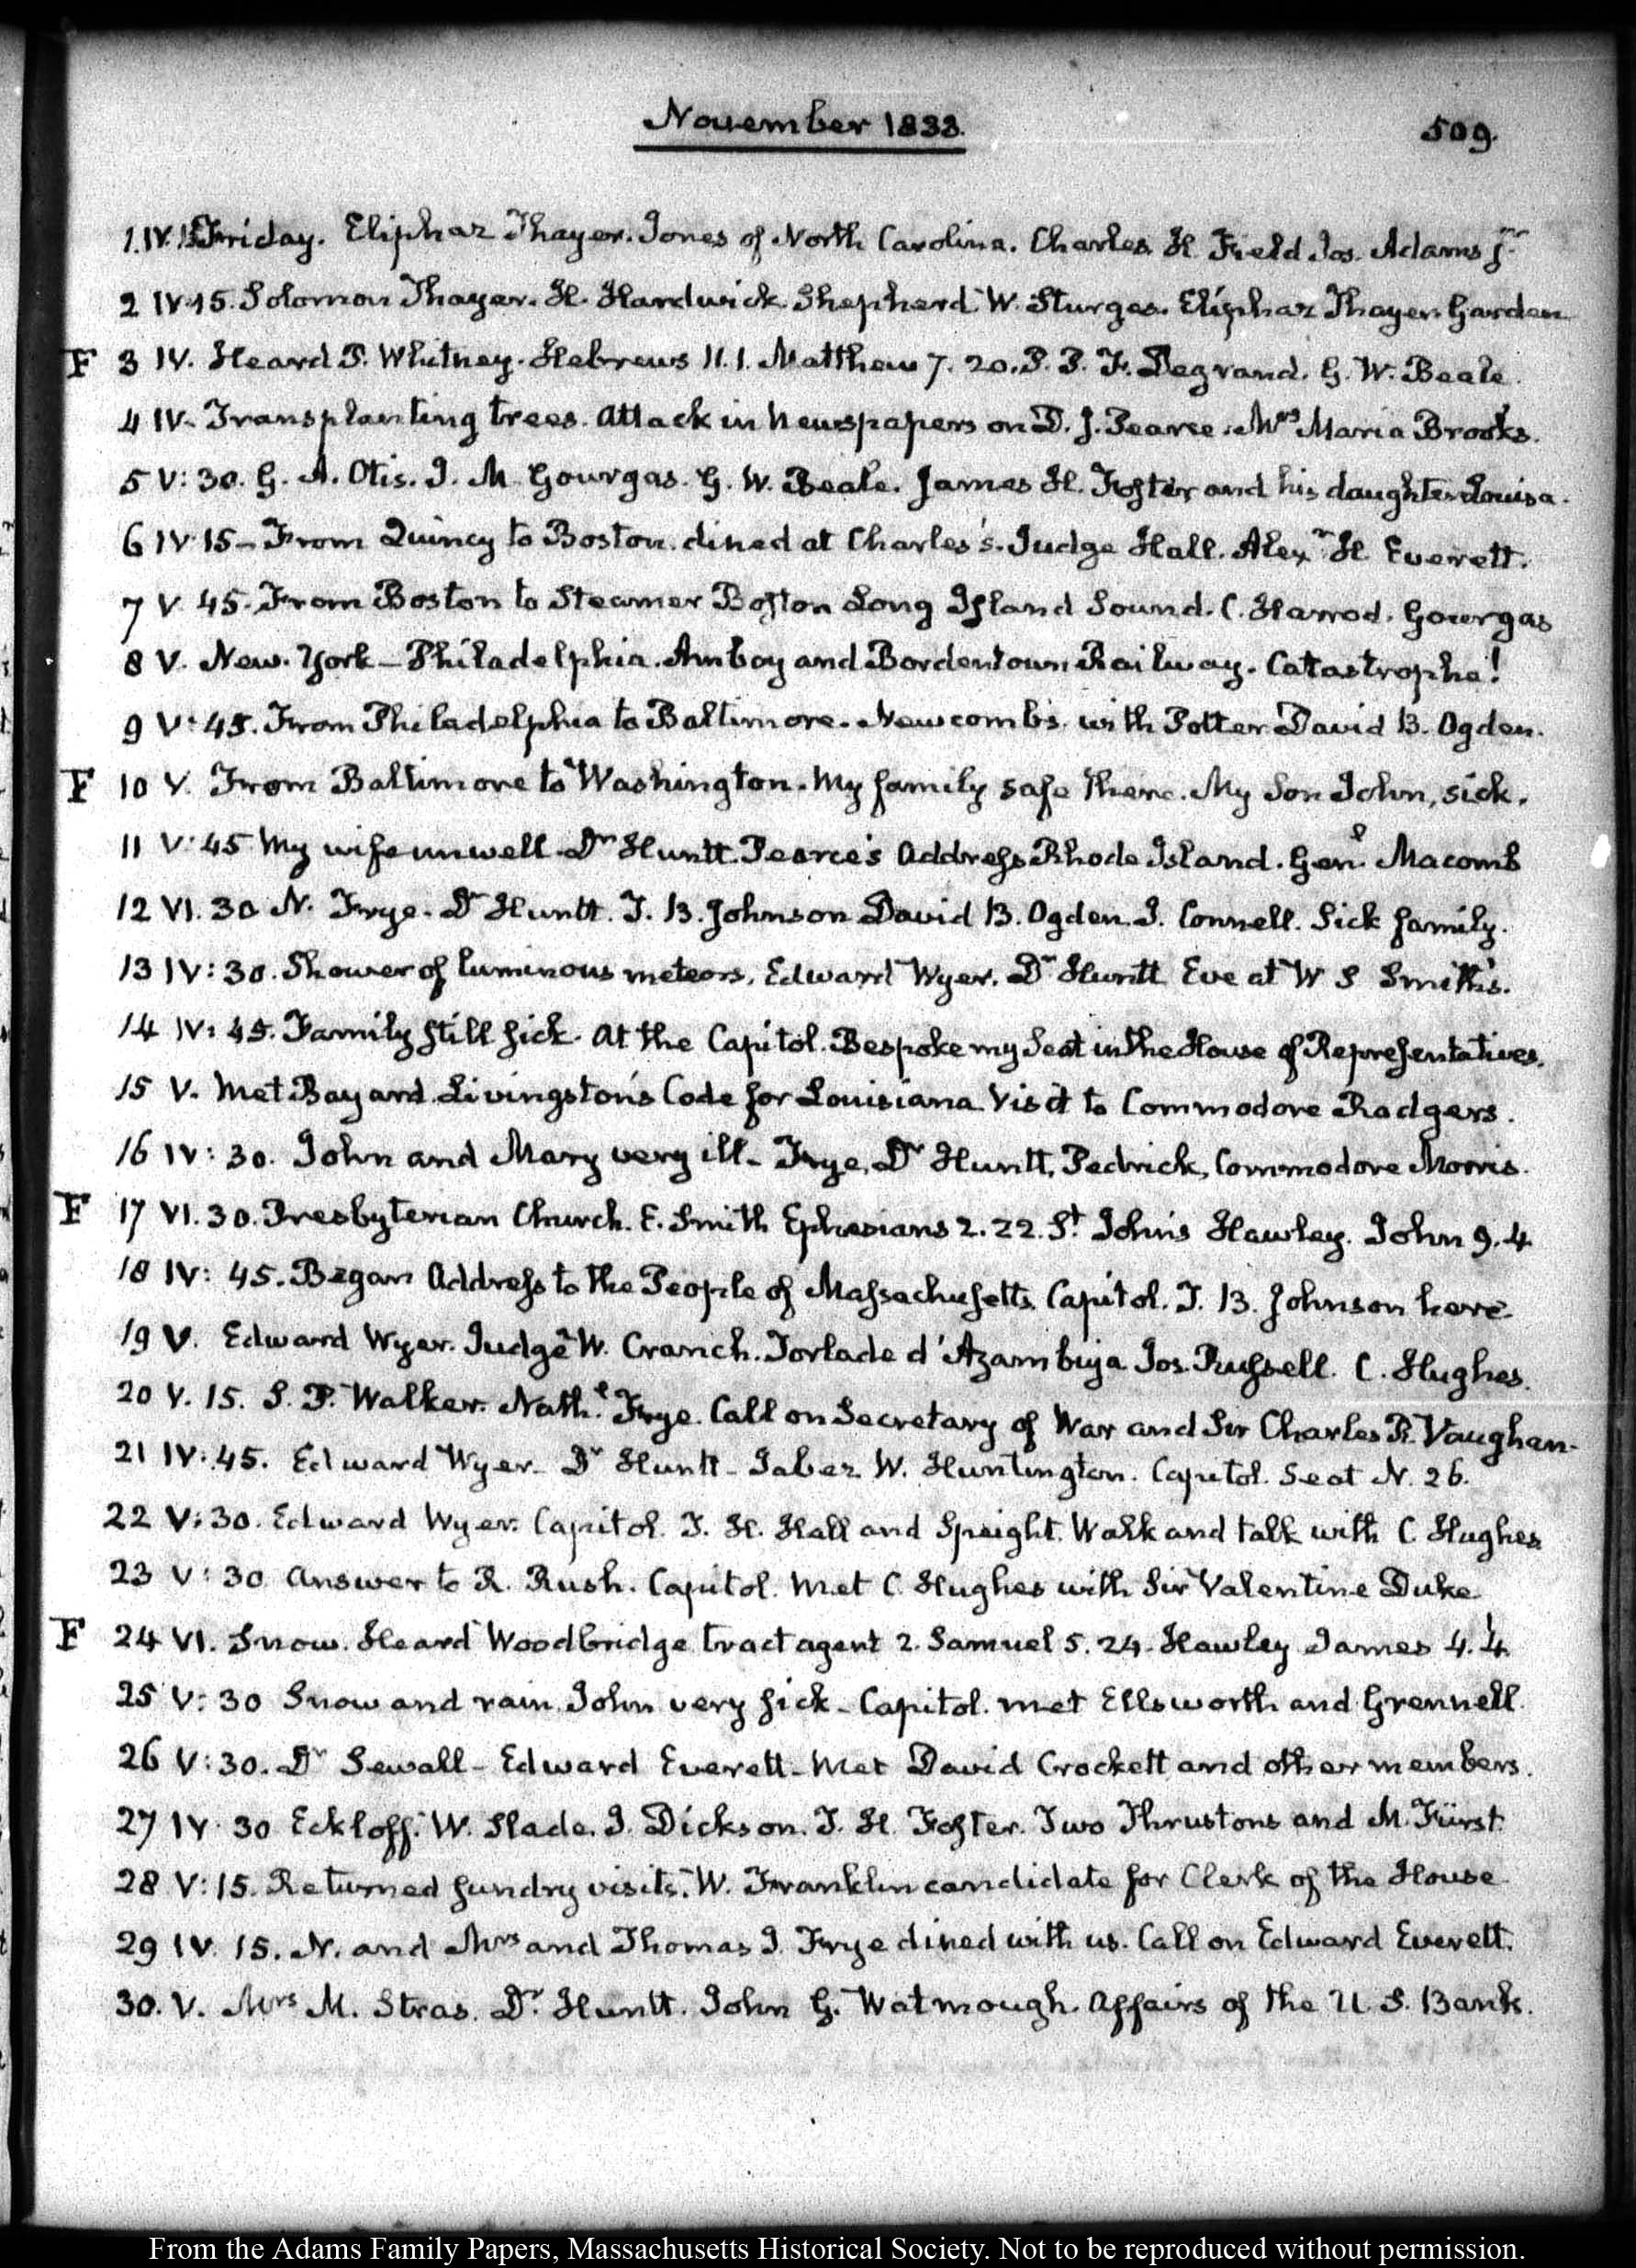 November 1833.
509.
1. IV. 15 Friday. Eliphaz Thayer. Jones of North Carolina. Charles H. Field Jos. Adams jr
2 IV. 15. Solomon Thayer. H. Hardwick. Shepherd W. Sturges. Eliphaz Thayer. Garden
F 3 IV. Heard P. Whitney. Hebrews 11. 1. Matthew 7. 20. P. P. F. Degrand. G. W. Beale.
4 IV. Transplanting trees. Attack in Newspapers on D. J. Pearce. Mrs Maria Brooks.
5 V: 30. G. A. Otis. J. M. Gourgas. G. W. Beale. James H. Foster and his daughter Louisa.
6 IV 15 – From Quincy to Boston. dined at Charles's. Judge Hall. Alexr H Everett.
7 V. 45. From Boston to Steamer Boston Long Island Sound. C. Harrod. Gourgas
8 V. New-York – Philadelphia. Amboy and Bordentown Railway. Catastrophe!
9 V: 45. From Philadelphia to Baltimore. Newcomb's. with Potter David B. Ogden.
F 10 V. From Baltimore to Washington. My family safe there. My Son John, sick.
11 V: 45 My wife unwell. Dr Huntt. Pearce's Address Rhode Island. Genl Macomb
12 VI. 30 N. Frye. Dr Huntt. T. B. Johnson David B. Ogden. J. Connell. Sick family.
13 IV: 30. Shower of luminous meteors. Edward Wyer. Dr Huntt Eve at W S Smith's.
14 IV: 45. Family still sick. At the Capitol. Bespoke my Seat in the House of Representatives.
15 V. Met Bayard. Livingston's Code for Louisiana Visit to Commodore Rodgers.
16 IV: 30. John and Mary very ill – Frye, Dr Huntt, Pedrick, Commodore Morris.
F 17 VI. 30. Presbyterian Church. E. Smith Ephesians 2. 22. St John's Hawley. John 9. 4
18 IV: 45. Began Address to the People of Massachusetts. Capitol. T. B. Johnson here
19 V. Edward Wyer. Judge W. Cranch. Torlade d'Azambuja Jos. Russell. C. Hughes.
20 V. 15. S. P. Walker. Nathl Frye. Call on Secretary of War and Sir Charles R. Vaughan.
21 IV: 45. Edward Wyer – Dr Huntt – Jabez W. Huntington. Capitol. Seat N. 26.
22 V: 30. Edward Wyer. Capitol. T. H. Hall and Speight. Walk and talk with C. Hughes
23 V: 30 Answer to R. Rush. Capitol. Met C. Hughes with Sir Valentine Duke
F 24 VI. Snow. Heard Woodbridge tract agent 2. Samuel 5. 24. Hawley James 4. 4.
25 V: 30 Snow and rain. John very sick – Capitol. met Ellsworth and Grennell.
26 V: 30. Dr Sewall – Edward Everett – Met David Crockett and other members.
27 IV 30 Eckloff. W. Slade. J. Dickson. T. H. Foster. Two Thrustons and M. Fürst.
28 V: 15. Returned sundry visits. W. Franklin candidate for Clerk of the House
29 IV. 15. N. and Mrs and Thomas J. Frye dined with us. Call on Edward Everett.
30. V. Mrs M. Stras. Dr. Huntt. John G. Watmough. Affairs of the U. S. Bank.
From the Adams Family Papers, Massachusetts Historical Society. Not to be reproduced without permission.